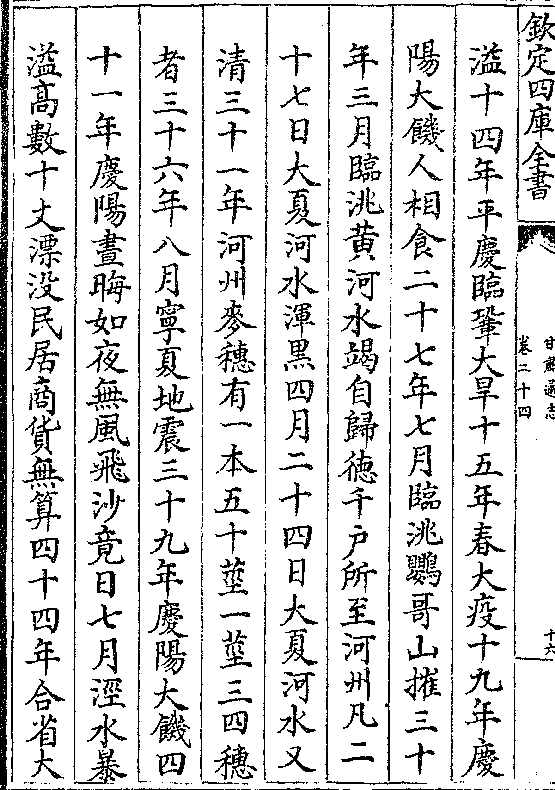 欽定四庫全書
甘肅通志
卷二十四
十六
溢十四年平慶臨鞏大旱十五年春大疫十九年慶
陽大饑人相食二十七年七月臨洮鸚哥山摧三十
年三月臨洮黄河水竭自歸徳千户所至河州凡二
十七日大夏河水渾黒四月二十四日大夏河水又
清三十一年河州麥穗有一本五十莖一莖三四穗
者三十六年八月寧夏地震三十九年慶陽大饑四
十一年慶陽晝晦如夜無風飛沙竟日七月涇水暴
溢髙數十丈漂没民居商貨無算四十四年合省大